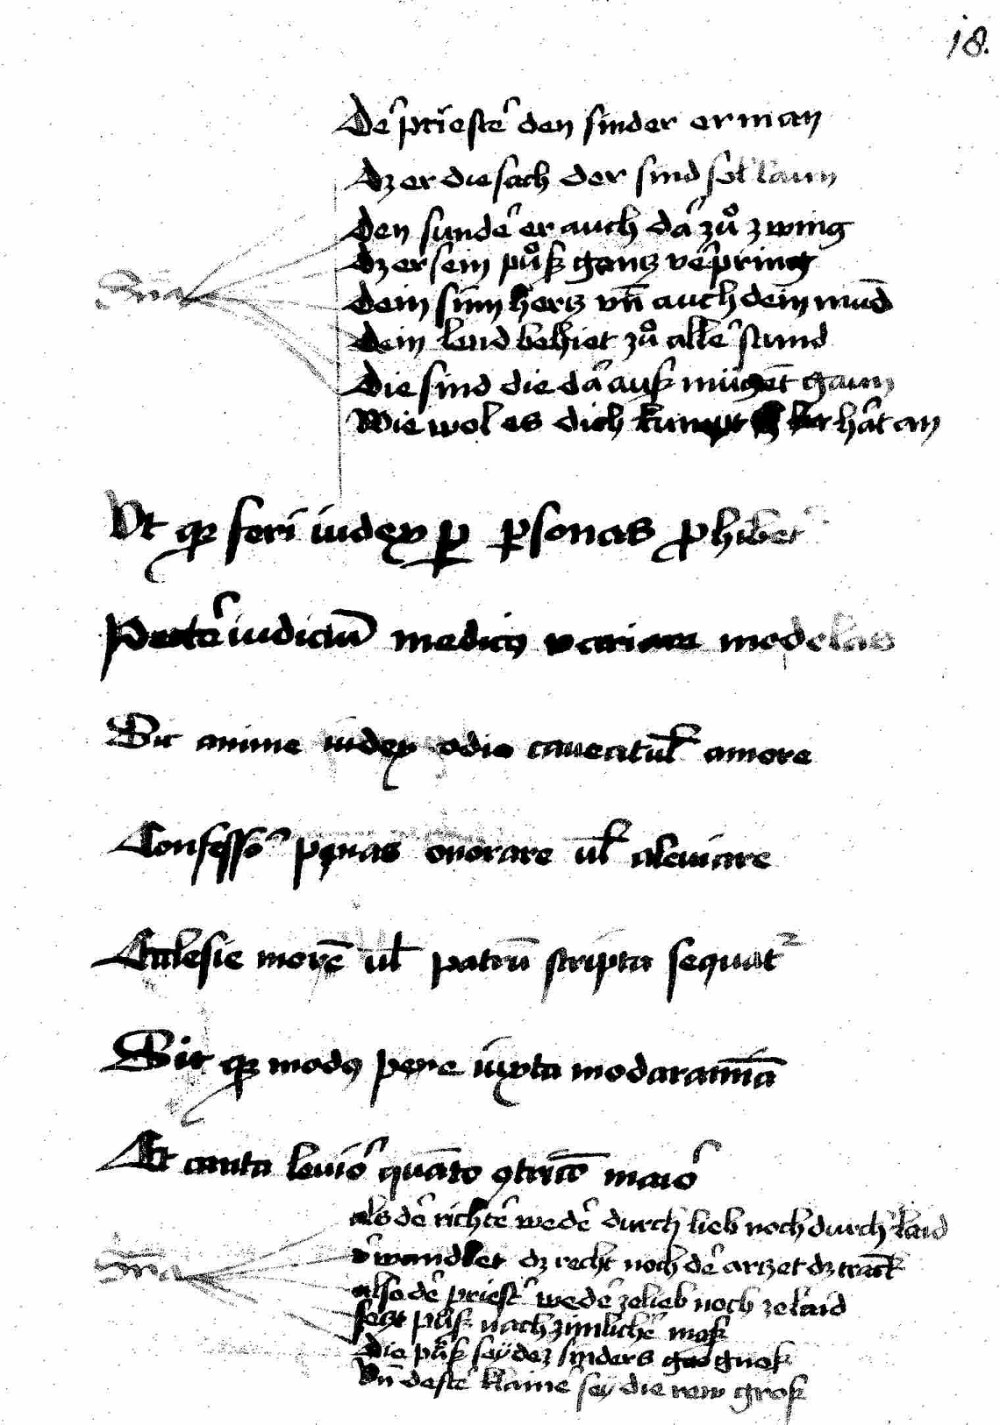 18.
De᷑ prieste᷑ den sinder erman
Dz er die sach der sind sol laun
Den sunde᷑ er auch da᷑ zuͦ zwing
Dz er sein puͦß gantz ve᷑pring
Dein sinn hertz vn̄ auch dein mūd
Dein leud behiet zuͦ alle᷑ stund
Die sind die da᷑ auß mügēt gaun
Wie wol es dich kumpt hāt an
Sūma
Vt qz fori iudex per personas prohibet᷑
 iudiciū medicꝰ variare modelas
Sit anime iudex odio caueat ul̄ amore
Confesso᷑ penas onorare ul̄ aleuiare
Ecclesie morē ul̄ patrū scripta sequat᷑
Sit qz modꝰ pene iuxta
Et tanta leuio᷑ quāto ꝯtricō maio᷑
als de᷑ richte᷑ wede᷑ durch lieb noch durch laid
v᷑wandlet dz recht noch de᷑ artzet dz tranck
also de᷑ priest᷑ wede᷑ ze lieb noch ze laid
setzt puͦß nach zimliche᷑ moß
die puͦß sey dez sinders gnoß
Vn̄ deste᷑ klaine᷑ sey die rew groß
Sūma